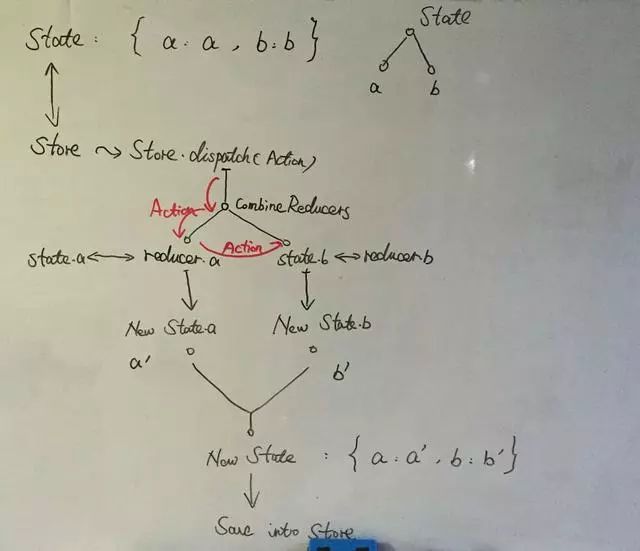 State : { a : a , b : b }
State
a b
Store ~> Store.dispatch(Action)
Action
CombineReducers
Action
state.a <-> reducer.a state.b <-> reducer.b
New State.a New State.b
a' b'
New State : { a : a' , b : b' }
Save into Store